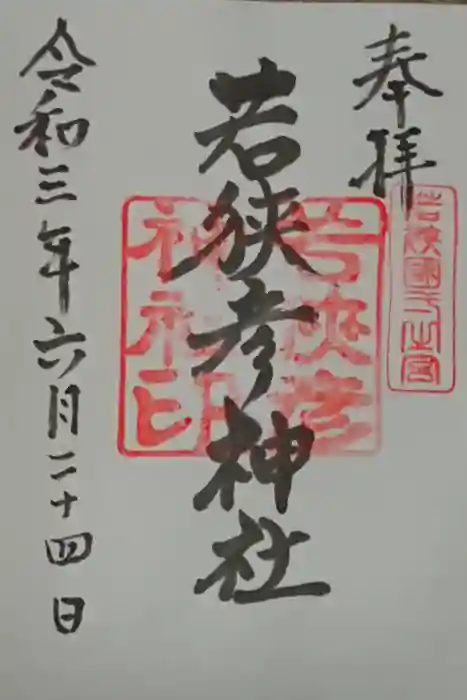 奉拝
若狭國一之宮
若狭彦神社
若狭彦
神社印
令和三年六月二十四日